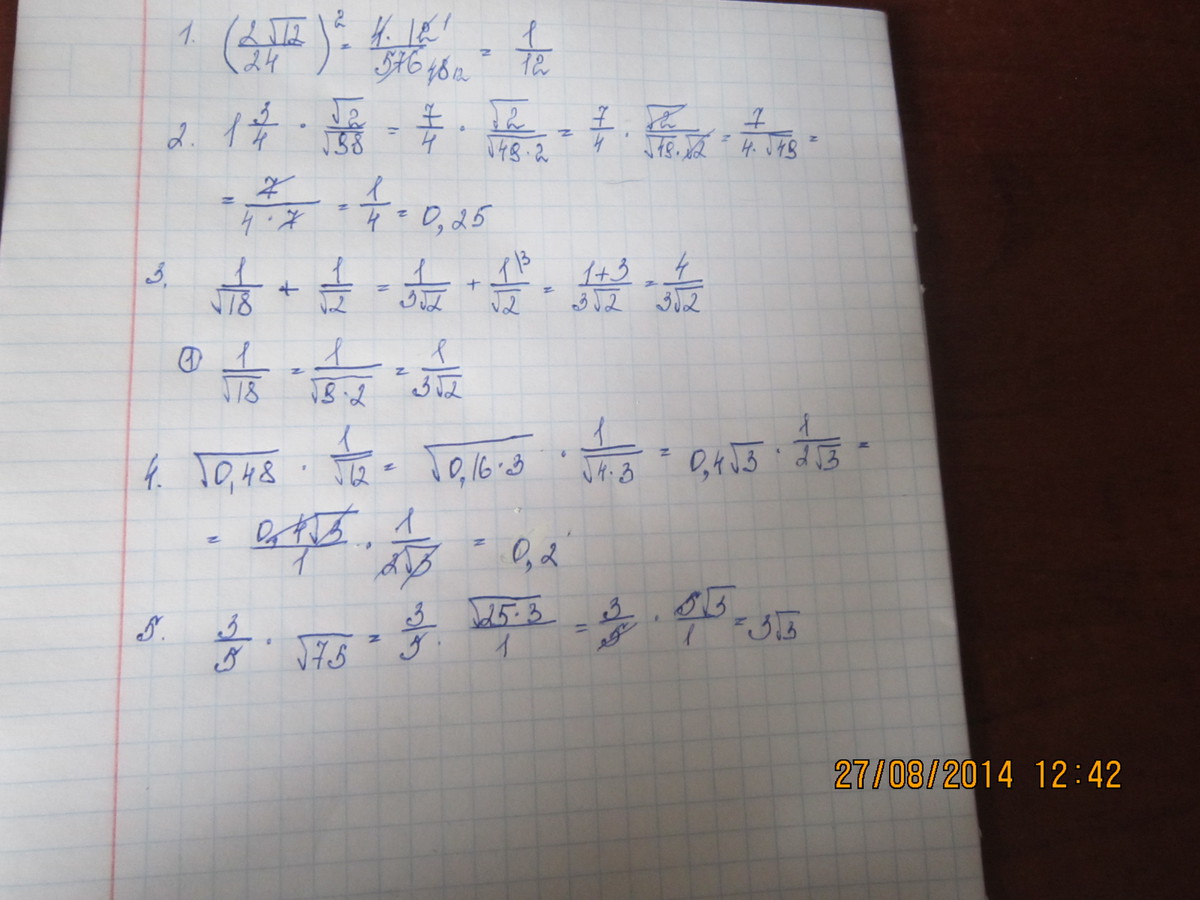 1. (2√12/24)² = 4·12 1/576 48 12 = 1/12
2. 1 3/4 · √2/√98 = 7/4 · √2/√49·2 = 7/4 · √2/√49·√2 = 7/4·√49 =
= 7/4·7 = 1/4 = 0,25
3. 1/√18 + 1/√2 = 1/3√2 + 1\3/√2 = 1+3/3√2 = 4/3√2
① 1/√18 = 1/√9·2 = 1/3√2
4. √0,48 · 1/√12 = √0,16·3 · 1/√4·3 = 0,4√3 · 1/2√3 =
= 0,4√3/1 · 1/2√3 = 0,2
5. 3/5 · √75 = 3/5 · √25·3/1 = 3/5 · 5√3/1 = 3√3
27/08/2014 12:42